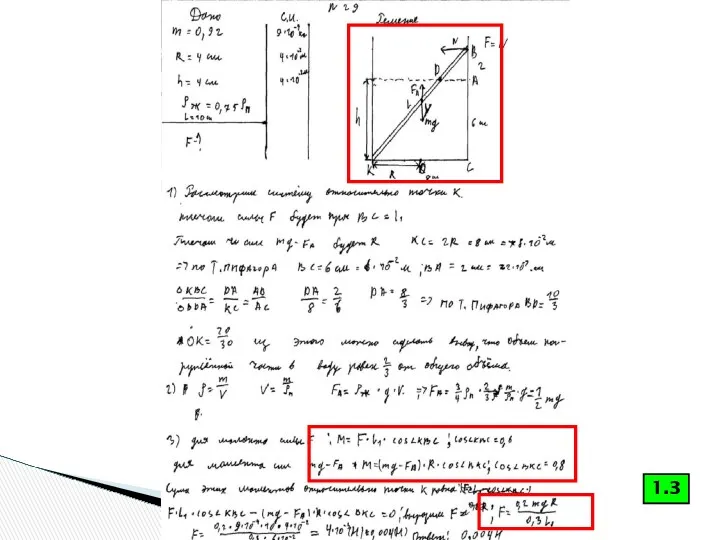 N 29
Дано
С.И.
Решение
m = 0,92
9·10⁻⁴ кг
R = 4 см
4·10⁻² м
h = 4 см
4·10⁻² м
ρж = 0,75 ρп
L = 10 см
F - ?
N B F = N
2
D A
FA
L
h
mg
6 см
K R O C
8 см
1) Рассмотрим систему относительно точки K.
плечом силы F будет при BC = l₁
Плечом же сил mg - FA будет R KC = 2R = 8 см = 8·10⁻² м
=> по Т. Пифагора BC = 6 см = 6·10⁻² м ; BA = 2 см = 2·10⁻² м
DA/KC = DA/8 = 2/6 DA = 8/3 => по Т. Пифагора BD = 10/3
DK = 20/30 из этого можно сделать вывод, что объем пог-
ружённой части в воду равен 2/3 от общего объёма.
2) ρ = m/V V = m/ρп FA = ρж · g · V. => FA = 3/4 ρп · 2/3 m/ρп · g = 1/2 mg
3) для момента силы F ; M = F·L₁·cos∠KBC ; cos∠KBC = 0,6
для момента сил mg - FA M = (mg - FA)·R·cos∠BKC ; cos∠BKC = 0,8
Сумма этих моментов относительно точки K равна
F·L₁·cos∠KBC - (mg - FA)·R·cos∠BKC = 0 ; выразим F ; F = 0,2 mgR / 0,3 L₁
F = = 4·10⁻³ (Н) (0,004Н) Ответ: 0,004Н
1.3